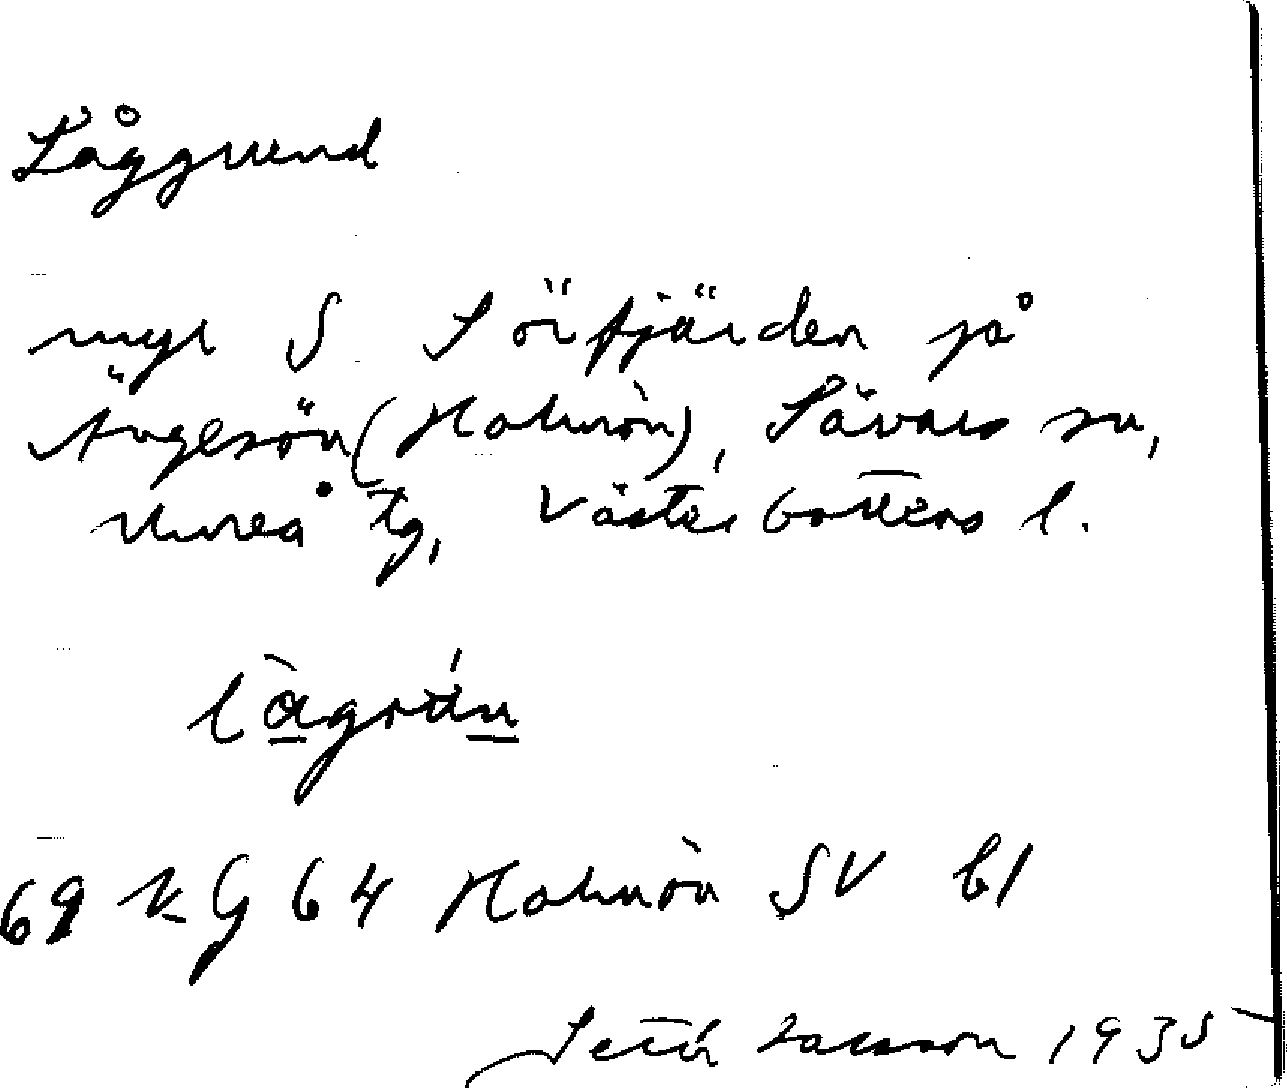 Låggrund
myr S Sörfjärden på
Ängesön (Holmön), Sävars sn,
Umeå tg, Västerbottens l.
lågrún
69 KG 64 Holmön SV bl
Setör Zacsson 1935